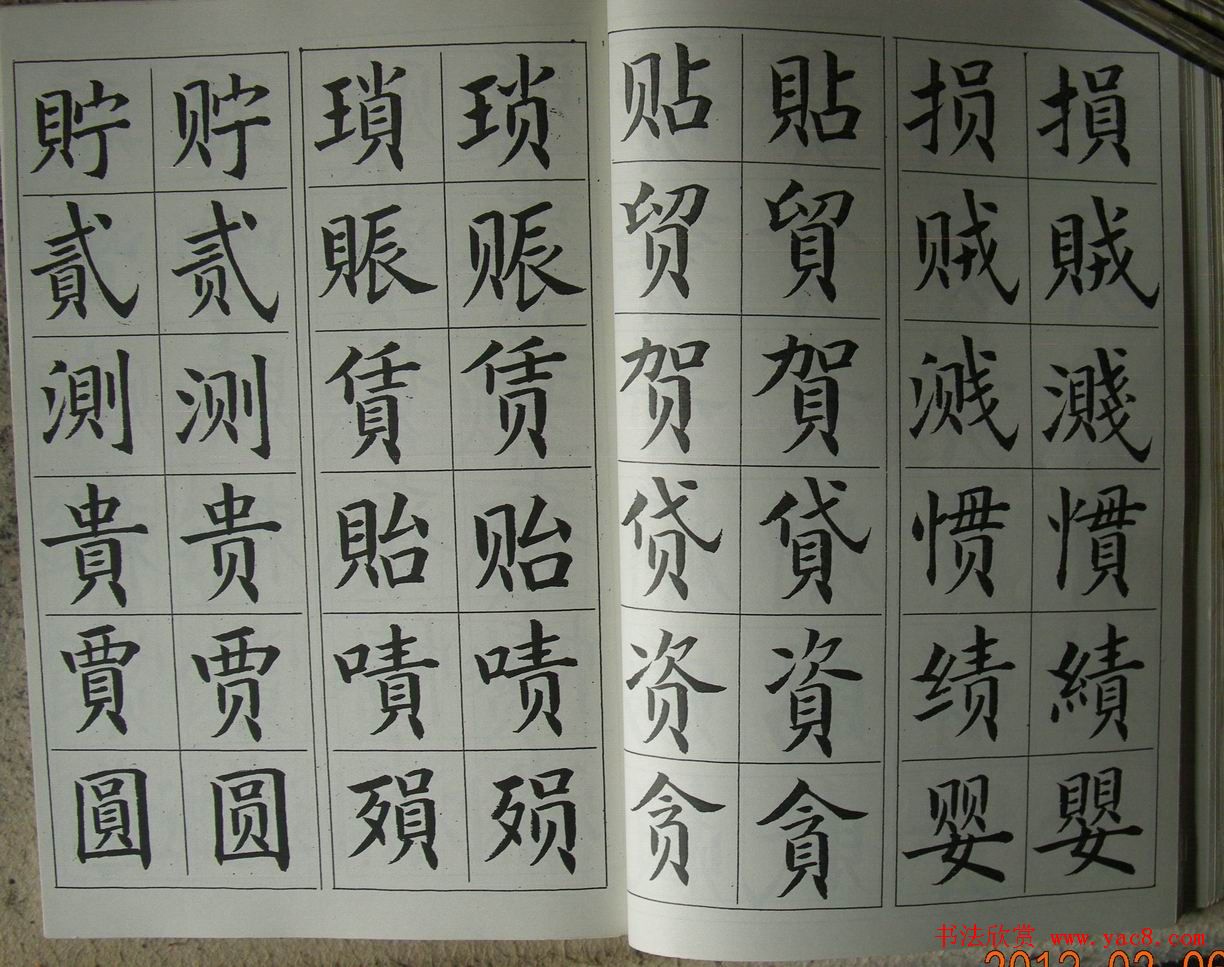 貯 贮 瑣 琐
貳 贰 賑 赈
測 测 賃 赁
貴 贵 貽 贻
賈 贾 嘖 啧
圓 圆 殞 殒
贴 貼 损 損
贸 貿 贼 賊
贺 賀 溅 濺
贷 貸 惯 慣
资 資 绩 績
贪 貪 婴 嬰
书法欣赏 www.yac8.com